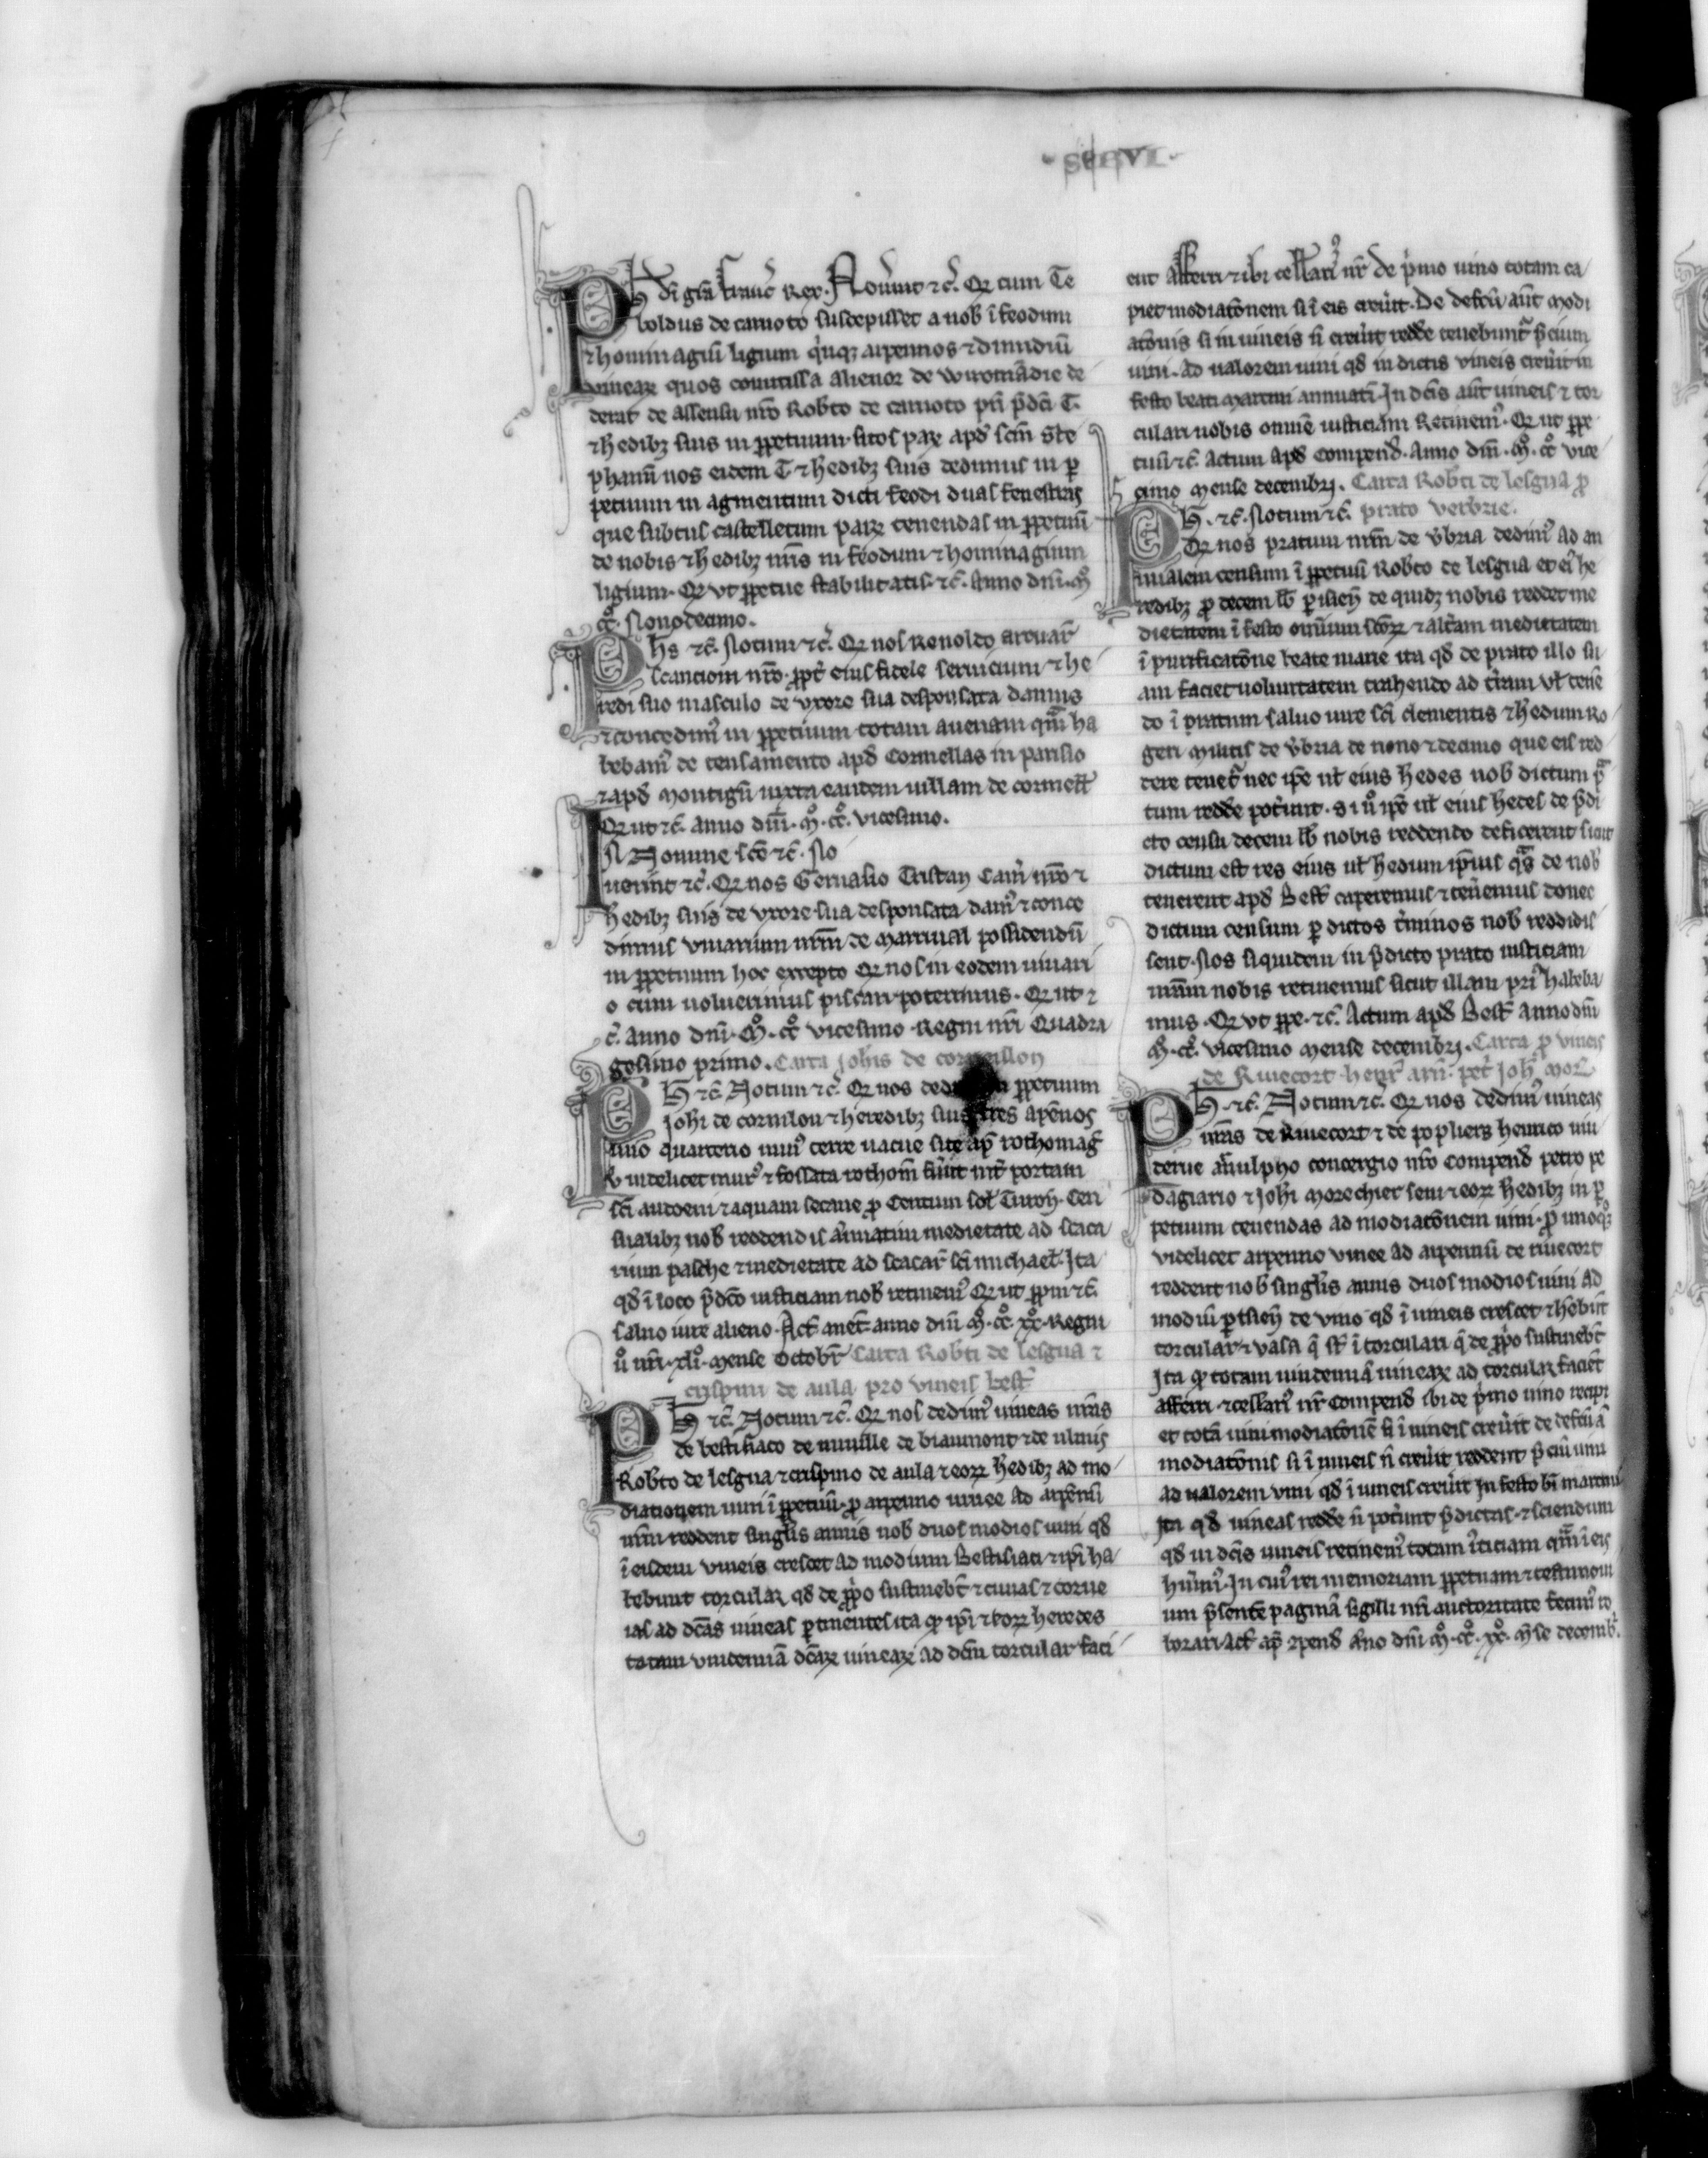 Ph dī grā franc̄ Rex. Nouerint ⁊c̄. Qd cum Te
boldus de carnoto suscepisset a nob ī feodum
⁊ hominagiū ligium q̇nqꝫ arpennos ⁊ dimidiū
vineaꝝ quos comitissa Alienor de Wiromādie de
derat de assensu nr̄o Robto de carnoto pr̄i p̄dc̄i T.
⁊ hedibꝫ suis in ꝑpetuum sitos paꝝ apd̄ sc̄m Ste
phanū nos eidem T ⁊ hedibꝫ suis dedimus in ꝑ
petuum in agmentum dicti feodi duas fenestras
que subtus castelletum paꝝ tenendas in ꝑpetuū
de nobis ⁊ hedibꝫ nr̄is in feodum ⁊ hominagium
ligium. Qd vt ꝑpetue stabilitatis ⁊c̄. Anno dn̄i. mͦ
ccͦ. Nonodecimo.
Phs ⁊c̄. Notum ⁊c̄. Qd nos Renoldo arcuar̄
Scanciom nr̄o ꝓpt̄ eius fidele seruicium ⁊ he
redi suo masculo de vxore sua desponsata damus
⁊ concedimꝰ in ꝑpetuum totam auenam qm̄ ha
bebamꝰ de tensamento apd̄ Cormellas in parisio
⁊ apd̄ Montignī iuxta eandem uillam de cormell̄
Qd ut ⁊c̄. anno dn̄i. mͦ. ccͦ. vicesimo.
IN Nomine sc̄e ⁊c̄. No
uerint ⁊c̄. Qd nos Geruasio Tristan Cam̄ nr̄o ⁊
hedibꝫ suis de vxore sua desponsata damꝰ ⁊ conce
dimus viuarium nr̄m de Martinal possidendū
in ꝑpetuum hoc excepto Qd nos in eodem uiuari
o cum uoluerimus piscari poterimus. Qd ut ⁊
c̄. anno dn̄i. mͦ. ccͦ vicesimo. Regni nr̄i Quadra
gesimo primo. Carta johis de corneillon
Ph ⁊c̄. Notum ⁊c̄. Qd nos ꝑpetuum
Johi de cornilon ⁊ heredibꝫ suis tres arpēnos
uno quarterio minꝰ terre uacue site ap̄ rothomaḡ
videlicet murꝰ ⁊ fossata rothom̄ fuer̄t int̄ portam
sc̄i audoeni ⁊ aquam secane ꝓ Centum sol̄ Turoñ. Cen
sualibꝫ nob̄ reddendis annuatim medietate ad scaca
rium pasche ⁊ medietate ad scacar̄ sc̄i michael̄. Ita
qd̄ ī loco p̄dc̄o iusticiam nob̄ retinemꝰ Qd ut ꝑpm ⁊c̄.
saluo iure alieno. Act̄ anet̄ anno dn̄i mͦ. ccͦ. xxͦ. Regni
ūͦ nr̄i. xliͦ. mense Octobr̄ Carta Robti de lesgua ⁊
crispini de aula pro vineis best̄
Ph ⁊c̄. Notum ⁊c̄. Qd nos dedimꝰ uineas nr̄as
de bestisiaco de nuuille de biaumont ⁊ de ulmis
Robto de lesgua ⁊ crispino de aula ⁊ eoꝝ hedibꝫ ad mo
diationem uini ī ꝑpetuū. ꝓ arpenno uinee ad arpēnū
nr̄m reddent singlis annis nob̄ duos modios uini qd̄
ī eisdem vineis crescet ad modium Bestisiaci ⁊ ipi ha
bebunt torcular qd̄ de ꝓprio sustinebt̄ ⁊ cuuas ⁊ corue
ias ad dc̄as uineas ꝑtinentes ita ꝙ ipi ⁊ eoꝝ heredes
totam vindemiā dc̄aꝝ uineaꝝ ad dc̄m torcular faci
ent Afferri ⁊ ibi cellariꝰ nr̄ de p̄mo uino totam ca
piet modiatōnem si ī eis creu̇it. De defctū aūt modi
atōnis si in uineis ñ creu̇it redde tenebunt̄ p̄cium
uini. ad ualorem uini qd̄ in dictis vineis creu̇it in
festo beati martini annuatī. In dc̄is aūt uineis ⁊ tor
culari nobis omnē iusticiam Retinemꝰ. Qd ut ꝑpe
tuū ⁊c̄. Actum apd̄ Compend̄. Anno dn̄i. mͦ. ccͦ vice
simo Mense decembrj. Carta Robti de lesgua ꝓ
Ph. ⁊c̄. Notum ⁊c̄. prato verbrie.
Qd nos pratum nr̄m de v̄bria dedimꝰ ad an
nualem censum ī ꝑpetuū Robto de lesgua et eiꝰ he
redibꝫ ꝓ decem lb̄ ꝑisieñ de quibꝫ nobis reddet me
dietatem ī festo omnium sc̄oꝝ ⁊ altam medietatem
ī purificatōne beate marie ita qd̄ de prato illo su
am faciet uoluntatem trahendo ad t̄ram ul̄ tenē
do ī pratum saluo iure sc̄i clementis ⁊ hedum Ro
geri Militis de v̄bria de nono ⁊ decimo que eis red
dere tenet̄ nec ipe ul̄ eius hedes nob̄ dictum p̄
tum redde pot̄unt. Si ūͦ ipe ul̄ eius hedes de p̄di
cto censu decem lb̄ nobis reddendo deficerent sicut
dictum est res eius ul̄ hedum ip̄ius qͣs de nob̄
tenerent apd̄ Best̄ caperemus ⁊ tenemus donec
dictum censum ꝑ dictos t̄minos nob̄ reddidis
sent. Nos siquidem in p̄dicto prato iusticiam
nr̄am nobis retinemus sicut illam prꝰ habeba
mus. Qd vt ꝑpe. ⁊c̄. Actum apd̄ Best̄ anno dn̄i
mͦ. ccͦ. vicesimo Mense decembrj. Carta ꝓ vineis
de Riuecort. henr̄ arn̄. pet̄ joh̄ mor̄
Ph. ⁊c̄. Notum ⁊c̄. Qd nos dedimꝰ uineas
nr̄as de Riuecort ⁊ de popliers henrico
arnulpho concergio nr̄o Compend̄ petro pe
dagiario ⁊ Johi morechier seni ⁊ eoꝝ hedibꝫ in ꝑ
petuum tenendas ad modiatōnem uini. ꝓ unoqͦqꝫ
videlicet arpenno vinee ad arpennū de riuecort
reddent nob̄ singlis annis duos modios uini ad
modiū ꝑisieñ de vino qd̄ ī uineis crescet ⁊ hēbūt
torcular ⁊ vasa q̄ st̄ ī torculari q̄ de ꝓprio sustinebt̄
Ita ꝙ totam uindemiā uineaꝝ ad torcular faciēt
afferri ⁊ cellarꝰ nr̄ Compend̄ ibi de p̄mo uino recipi
et totā uini modiatōnē si ī uineis creu̇it de defctū
modiatōnis si ī uineis ñ creu̇it reddent p̄ciū uini
ad ualorem uini qd̄ ī uineis creu̇it In festo bī martini
Ita qd̄ uineas redde ñ pot̄unt p̄dictas ⁊ sciendum
qd̄ in dc̄is uineis retinemꝰ totam iusticiam qm̄ ī eis
hūimꝰ. In cuiꝰ rei memoriam ꝑpetuam ⁊ testimoni
um p̄sentē paginā sigilli nr̄i auctoritate fecimꝰ ro
borari. Act̄ ap̄ ꝯpend̄ Anno dn̄i mͦ. ccͦ. xxͦ. Mēse decembr̄.